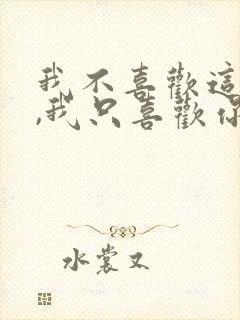 我不喜歡這
,我只喜歡你
水裳又